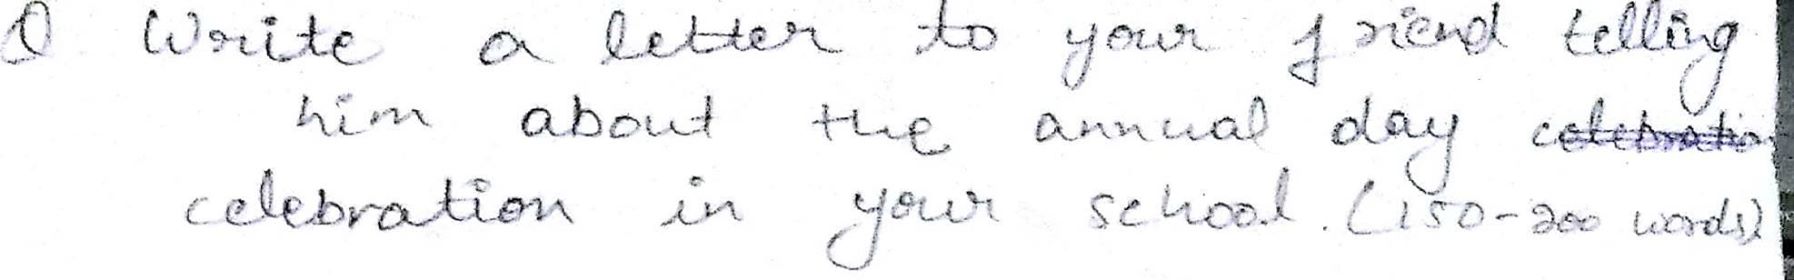 Q Write a letter to your friend telling
him about the annual day celebration
celebration in your school. (150-200 words)